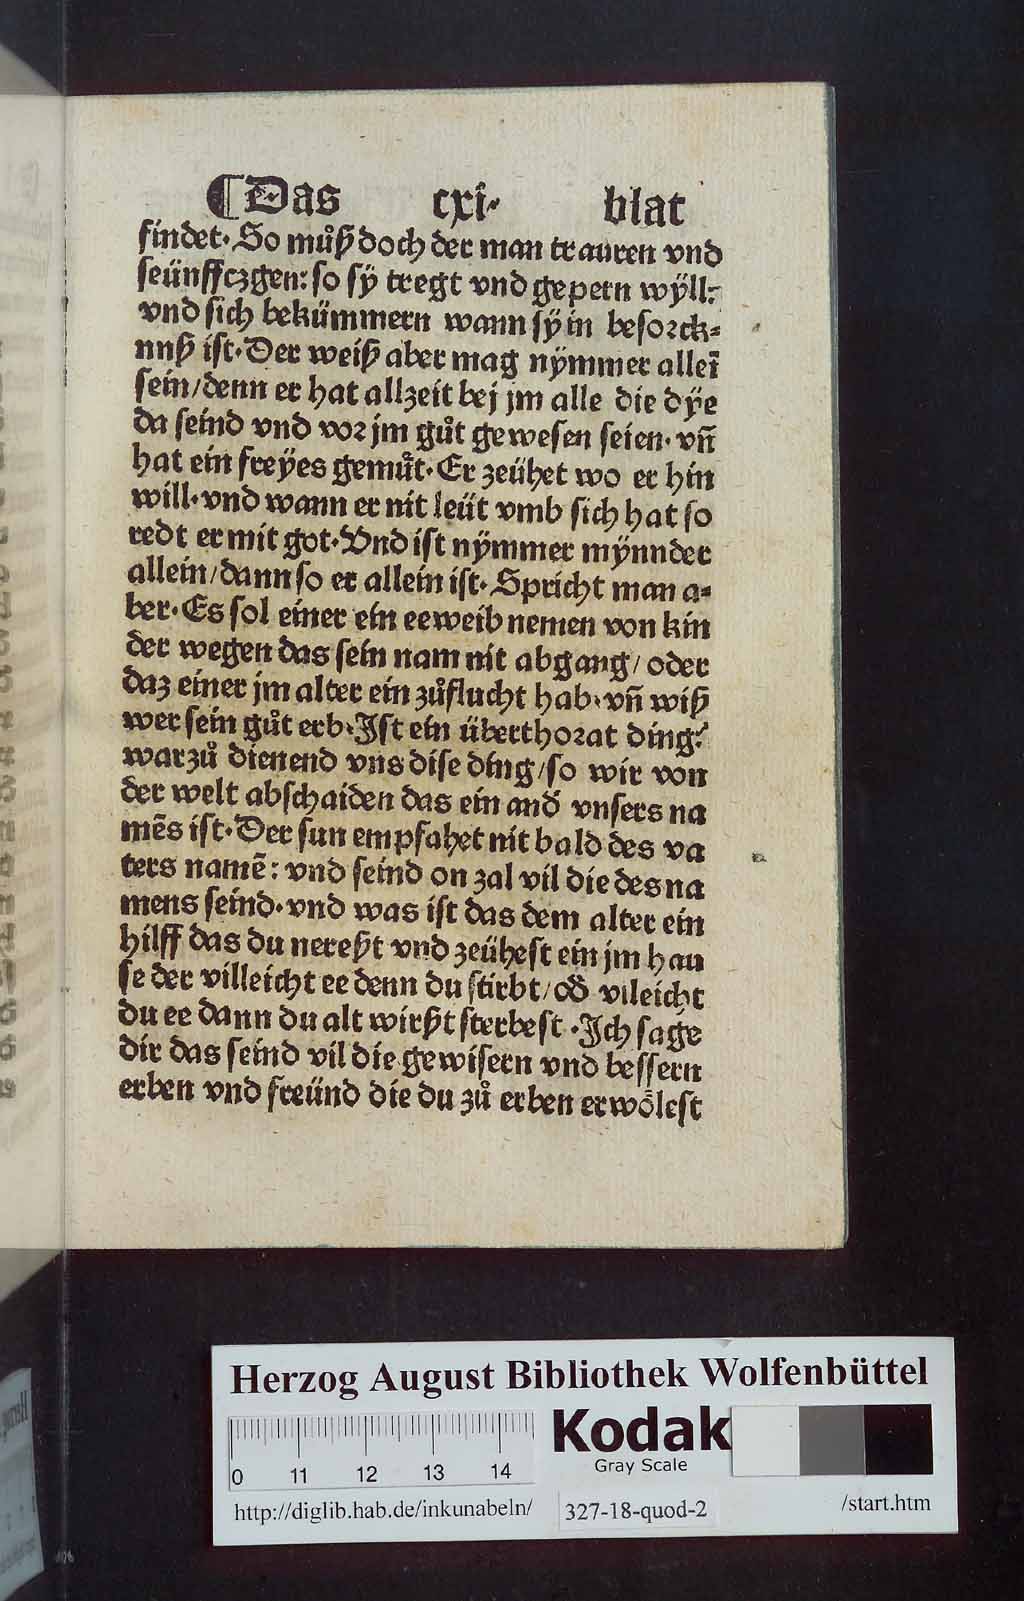 ¶Das cxi· blat
findet· So můß doch der man trauren vnd
seünffczgen: so sÿ tregt vnd gepern wÿll:
vnd sich bekümmern wann sÿ in besorck⸗
nnß ist· Der weiß aber mag nÿmmer alleī
sein/denn er hat allzeit bej jm alle die dÿe
da seind vnd vor jm gůt gewesen seien· vn̄
hat ein freÿes gemůt· Er zeühet wo er hin
will· vnd wann er nit leüt vmb sich hat so
redt er mit got· Vnd ist nÿmmer mÿnnder
allein/dann so er allein ist· Spricht man a⸗
ber· Es sol einer ein eeweib nemen von kin
der wegen das sein nam nit abgang/ oder
daz einer jm alter ein zůflucht hab· vn̄ wiß
wer sein gůt erb· Ist ein überthorat ding?
warzů dienend vns dise ding/so wir von
der welt abschaiden das ein and̓ vnsers na
mēs ist· Der sun empfahet nit bald des va
ters namē: vnd seind on zal vil die des na
mens seind· vnd was ist das dem alter ein
hilff das du nereßt vnd zeühest ein jm hau
se der villeicht ee denn du stirbt/ od̓ vileicht
du ee dann du alt wirßt sterbest · Ich sage
dir das seind vil die gewisern vnd bessern
erben vnd freünd die du zů erben erwölest
Herzog August Bibliothek Wolfenbüttel
Kodak
Gray Scale
0 11 12 13 14
http://diglib.hab.de/inkunabeln/ 327-18-quod-2 /start.htm